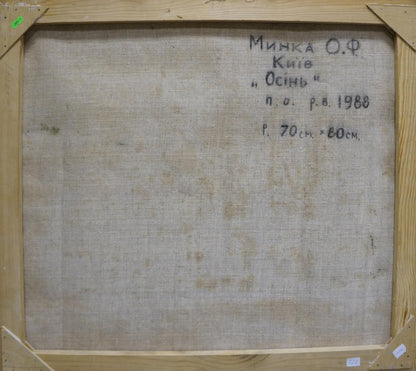 Минка О.Ф
Київ
„Осінь“
п. о. р.в. 1988
р. 70см. × 80см.